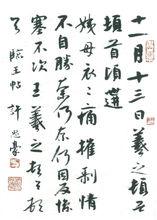 十一月十三日羲之頓首
頓首頃遘
姨母哀哀痛摧剝情
不自勝奈何奈何因反慘
塞不次王羲之頓首頓
首 臨王帖 許